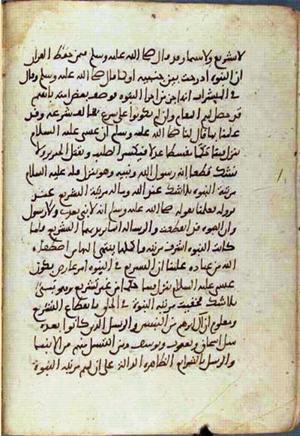 لا بتشريع ولا سماه وقال صلى الله عليه وسلم فمن حفظ القران
ان النبوة ادرجت بين جنبيه او كما قال صلى الله عليه وسلم وقال
في المبشرات انها جزء من اجزا النبوة فوصف بعض امته بانهم
قد حصل لهم المقام وان لم يكونوا على شرع يخالف شرعه وقد
علمنا بما قال لنا صلى الله عليه وسلم ان عيسى عليه السلام
ينزل فينا حكما مقسطا عدلا فيكسر الصليب ويقتل الخنزير ولا
نشك قطعا انه رسول الله ونبيه وهو ينزل فله عليه السلام
مرتبة النبوة بلا شك عند الله وما له مرتبة التشريع عند
نزوله فعلمنا بقوله صلى الله عليه وسلم انه لا نبي بعدي ولا رسول
وان النبوة قد انقطعت والرسالة انما يريد بهما التشريع ولما
كانت النبوة اشرف مرتبة واكملها ينتهي اليها من اصطفاه
الله من عباده علمنا ان التشريع في النبوة امر عارض بكون
عيسى عليه السلام ينزل فينا حكما من غير تشريع وهو نبي
بلا شك فخفيت مرتبة النبوة في الخلق بانقطاع التشريع
ومعلوم ان آل ابرهيم من النبيين والرسل الذين كانوا بعده
مثل اسحاق ويعقوب ويوسف ومن انتسل منهم من الانبيا
والرسل بالشرائع الظاهرة الدالة على ان لهم مرتبة النبوة